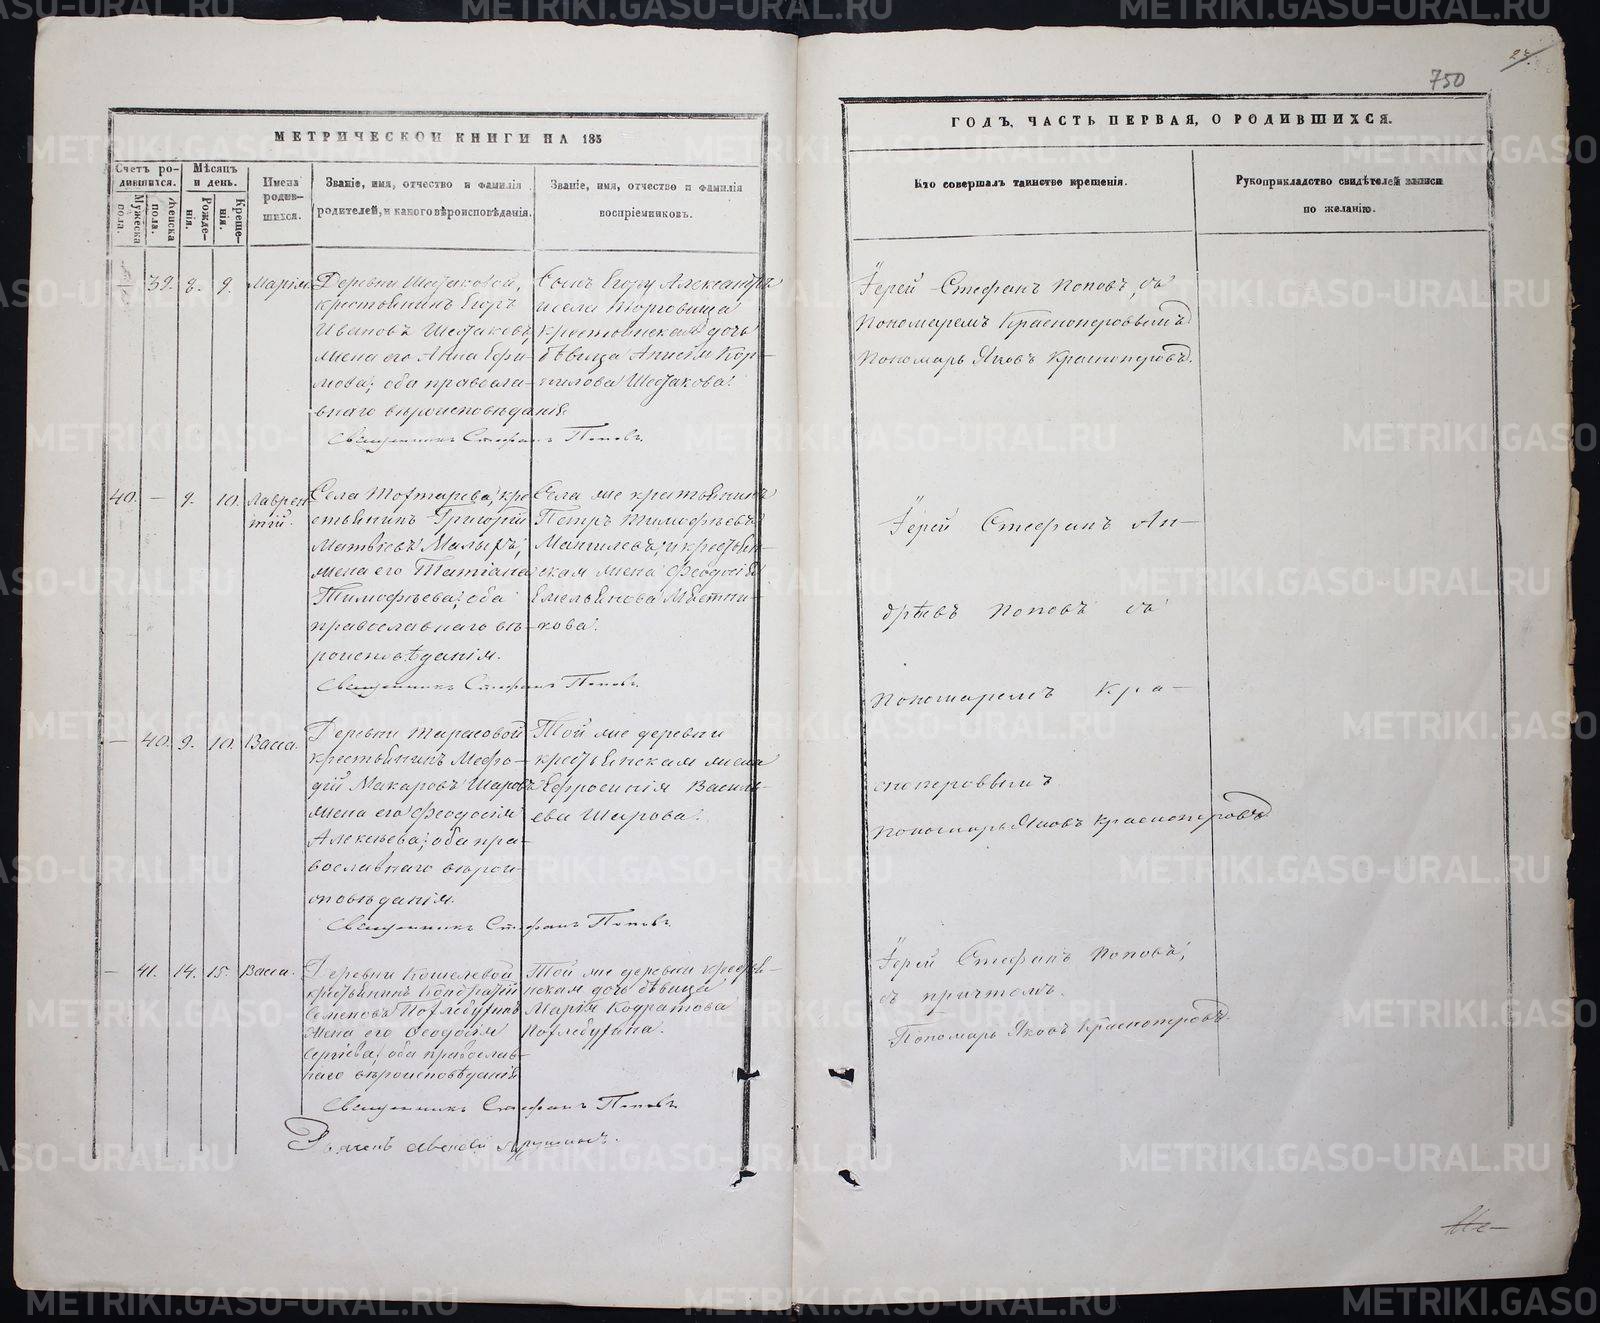 750
МЕТРИЧЕСКОЙ КНИГИ НА 185
ГОДЪ, ЧАСТЬ ПЕРВАЯ, О РОДИВШИХСЯ.
Счетъ ро-
дившихся.
Мужеска
пола.
Женска
пола.
Мѣсяцъ
и день.
Рожде-
нія.
Креще-
нія.
Имена
родив-
шихся.
Званіе, имя, отчество и фамилія
родителей, и какого вѣроисповѣданія.
Званіе, имя, отчество и фамилія
воспріемниковъ.
Кто совершалъ таинство крещенія.
Рукоприкладство свидѣтелей записи
по желанію.
39. 8. 9. Марія
Деревни Шестаковой,
крестьянинъ Егоръ
Ивановъ Шестаковъ,
жена его Анна Ефи-
мова; оба правосла-
внаго вѣроисповѣданія.
Сынъ Егору Александръ
и села Торговища
крестьянская дочь
дѣвица Анисья Кор-
нилова Шестакова.
Священникъ Стефанъ Поповъ.
Іерей Стефанъ Поповъ, съ
Пономаремъ Красноперовымъ
Пономарь Яковъ Красноперовъ.
40. — 9. 10. Лаврен-
тій.
Села Тохтарева, кре
стьянинъ Григорій
Матвѣевъ Малыхъ,
жена его Татіана
Тимофѣева; оба
православнаго вѣ-
роисповѣданія.
Села же крестьянинъ
Петръ Тимофѣевъ
Мангилевъ, и крестьян-
ская жена Феодосія
Емельянова Мѣстни-
кова.
Священникъ Стефанъ Поповъ.
Іерей Стефанъ Ан-
дрѣевъ Поповъ съ
Пономаремъ Кра-
сноперовымъ
Пономарь Яковъ Красноперовъ
— 40. 9. 10. Васса.
Деревни Тарасовой
крестьянинъ Мефо-
дій Макаровъ Шаровъ
жена его Феодосія
Алексѣева; оба пра-
вославнаго вѣрои-
сповѣданія.
Той же деревни
крестьянская жена
Ефросинія Василь-
ева Шарова.
Священникъ Стефанъ Поповъ.
— 41. 14. 15. Васса.
Деревни Кошелевой
крестьянинъ Кондратій
Семеновъ Потлебутинъ
жена его Феодосія
Сергѣева; оба православ-
наго вѣроисповѣданія
Той же деревни крестьян-
ская дочь дѣвица
Марія Кодратова
Потлебутина.
Священникъ Стефанъ Поповъ.
Іерей Стефанъ Поповъ,
съ причтомъ.
Пономарь Яковъ Красноперовъ.
METRIKI.GASO-URAL.RU